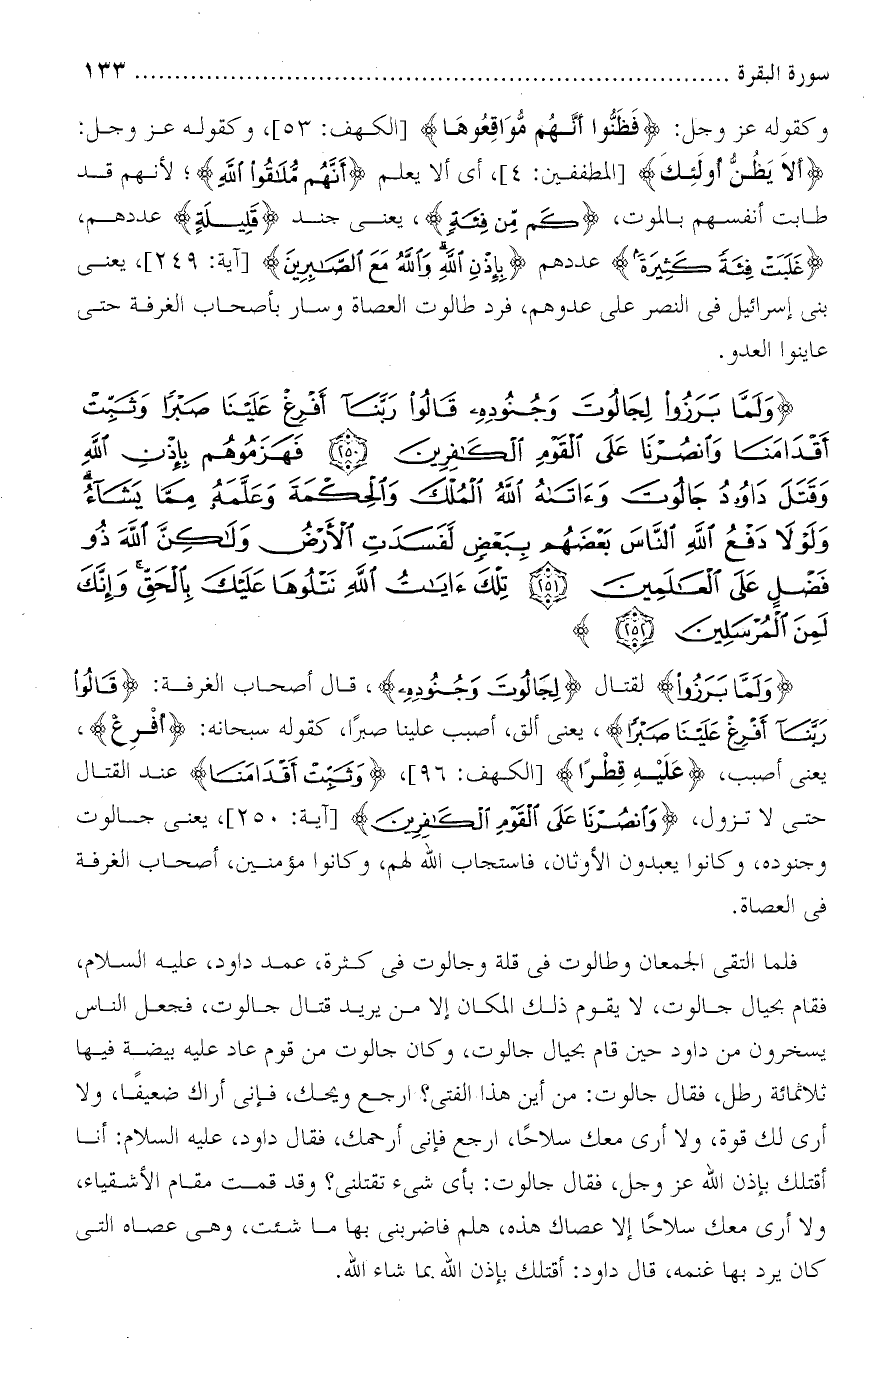 سورة البقرة ........................................................................ ١٣٣
وكقوله عز وجل: ﴿فَظَنُّوا أَنَّهُم مُّوَاقِعُوهَا﴾ [الكهف: ٥٣]، وكقوله عز وجل:
﴿أَلا يَظُنُّ أُولَئِكَ﴾ [المطففين: ٤]، أى ألا يعلم ﴿أَنَّهُم مُّلَاقُوا اللَّهِ﴾؛ لأنهم قد
طابت أنفسهم بالموت، ﴿كَم مِّن فِئَةٍ﴾، يعنى جند ﴿قَلِيلَةٍ﴾ عددهم،
﴿غَلَبَتْ فِئَةً كَثِيرَةً﴾ عددهم ﴿بِإِذْنِ اللَّهِ وَاللَّهُ مَعَ الصَّابِرِينَ﴾ [آية: ٢٤٩]، يعنى
بنى إسرائيل فى النصر على عدوهم، فرد طالوت العصاة وسار بأصحاب الغرفة حتى
عاينوا العدو.
﴿وَلَمَّا بَرَزُوا لِجَالُوتَ وَجُنُودِهِ قَالُوا رَبَّنَا أَفْرِغْ عَلَيْنَا صَبْرًا وَثَبِّتْ
أَقْدَامَنَا وَانصُرْنَا عَلَى الْقَوْمِ الْكَافِرِينَ ﴿٢٥٠﴾ فَهَزَمُوهُم بِإِذْنِ اللَّهِ
وَقَتَلَ دَاوُدُ جَالُوتَ وَءَاتَاهُ اللَّهُ الْمُلْكَ وَالْحِكْمَةَ وَعَلَّمَهُ مِمَّا يَشَاءُ
وَلَوْلَا دَفْعُ اللَّهِ النَّاسَ بَعْضَهُم بِبَعْضٍ لَفَسَدَتِ الْأَرْضُ وَلَكِنَّ اللَّهَ ذُو
فَضْلٍ عَلَى الْعَالَمِينَ ﴿٢٥١﴾ تِلْكَ ءَايَاتُ اللَّهِ نَتْلُوهَا عَلَيْكَ بِالْحَقِّ وَإِنَّكَ
لَمِنَ الْمُرْسَلِينَ ﴿٢٥٢﴾ ﴾
﴿وَلَمَّا بَرَزُوا﴾ لقتال ﴿لِجَالُوتَ وَجُنُودِهِ﴾، قال أصحاب الغرفة: ﴿قَالُوا
رَبَّنَا أَفْرِغْ عَلَيْنَا صَبْرًا﴾، يعنى ألق، أصبب علينا صبرًا، كقوله سبحانه: ﴿أُفْرِغْ﴾،
يعنى أصبب، ﴿عَلَيْهِ قِطْرًا﴾ [الكهف: ٩٦]، ﴿وَثَبِّتْ أَقْدَامَنَا﴾ عند القتال
حتى لا تزول، ﴿وَانصُرْنَا عَلَى الْقَوْمِ الْكَافِرِينَ﴾ [آية: ٢٥٠]، يعنى جالوت
وجنوده، وكانوا يعبدون الأوثان، فاستجاب الله لهم، وكانوا مؤمنين، أصحاب الغرفة
فى العصاة.
فلما التقى الجمعان وطالوت فى قلة وجالوت فى كثرة، عمد داود، عليه السلام،
فقام بحيال جالوت، لا يقوم ذلك المكان إلا من يريد قتال جالوت، فجعل الناس
يسخرون من داود حين قام بحيال جالوت، وكان جالوت من قوم عاد عليه بيضة فيها
ثلاثمائة رطل، فقال جالوت: من أين هذا الفتى؟ ارجع ويحك، فإنى أراك ضعيفًا، ولا
أرى لك قوة، ولا أرى معك سلاحًا، ارجع فإنى أرحمك، فقال داود، عليه السلام: أنا
أقتلك بإذن الله عز وجل، فقال جالوت: بأى شىء تقتلنى؟ وقد قمت مقام الأشقياء،
ولا أرى معك سلاحًا إلا عصاك هذه، هلم فاضربنى بها ما شئت، وهى عصاه التى
كان يرد بها غنمه، قال داود: أقتلك بإذن الله بما شاء الله.